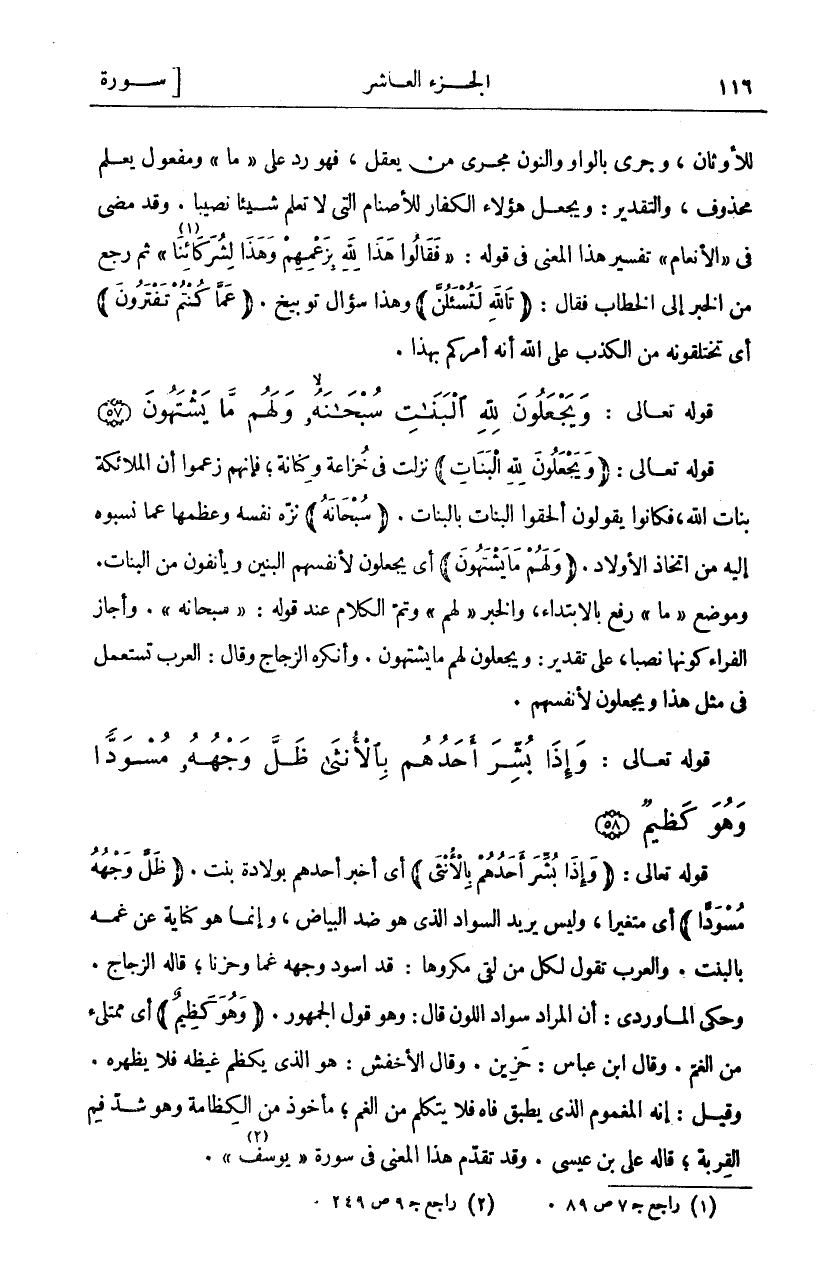 ١١٦ الجـزء العـاشر [ ســورة
للأوثان ، وجرى بالواو والنون مجـرى مـن يعقل ، فهو رد على « ما » ومفعول يعـلم
محذوف ، والتقدير : ويجعـل هؤلاء الكفار للأصنام التى لا تعلم شـيئا نصيبا . وقد مضى
فى «الأنعام» تفسير هذا المعنى فى قوله : « فَقَالُوا هَذَا لِلّٰهِ بِزَعْمِهِمْ وَهَذَا لِشُرَكَائِنَا (١) » ثم رجع
من الخبر إلى الخطاب فقال : ﴿ تَاللّٰهِ لَتُسْئَلُنَّ ﴾ وهذا سؤال توبيخ . ﴿ عَمَّا كُنْتُمْ تَفْتَرُونَ ﴾
أى تختلقونه من الكذب على الله أنه أمركم بهذا .
قوله تعـالى : وَيَجْعَلُونَ لِلّٰهِ ٱلْبَنَٰتِ سُبْحَٰنَهُۥ ۙ وَلَهُم مَّا يَشْتَهُونَ ﴿٥٧﴾
قوله تعـالى : ﴿ وَيَجْعَلُونَ لِلّٰهِ الْبَنَاتِ ﴾ نزلت فى خُزاعة وكنانة ؛ فإنهم زعموا أن الملائكة
بنات الله ، فكانوا يقولون ألحقوا البنات بالبنات . ﴿ سُبْحَانَهُ ﴾ نزّه نفسه وعظمها عما نسبوه
إليه من اتخاذ الأولاد . ﴿ وَلَهُمْ مَا يَشْتَهُونَ ﴾ أى يجعلون لأنفسهم البنين ويأنفون من البنات .
وموضع « ما » رفع بالابتداء، والخبر « لهم » وتمّ الكلام عند قوله : « سبحانه » . وأجاز
الفراء كونها نصبا، على تقدير : ويجعلون لهم ما يشتهون . وأنكره الزجاج وقال : العرب تستعمل
فى مثل هذا ويجعلون لأنفسهم .
قوله تعـالى : وَإِذَا بُشِّرَ أَحَدُهُم بِٱلْأُنثَىٰ ظَلَّ وَجْهُهُۥ مُسْوَدًّا
وَهُوَ كَظِيمٌ ﴿٥٨﴾
قوله تعالى : ﴿ وَإِذَا بُشِّرَ أَحَدُهُمْ بِالْأُنْثَى ﴾ أى أخبر أحدهم بولادة بنت . ﴿ ظَلَّ وَجْهُهُ
مُسْوَدًّا ﴾ أى متغيرا ، وليس يريد السواد الذى هو ضد البياض ، وإنمـا هو كناية عن غمـه
بالبنت . والعرب تقول لكل من لقى مكروها : قد اسود وجهه غما وحزنا ؛ قاله الزجاج .
وحكى المـاوردى : أن المراد سواد اللون قال : وهو قول الجمهور . ﴿ وَهُوَ كَظِيمٌ ﴾ أى ممتلىء
من الغمّ . وقال ابن عباس : حَزِين . وقال الأخفش : هو الذى يكظم غيظه فلا يظهره .
وقيـل : إنه المغموم الذى يطبق فاه فلا يتكلم من الغم ؛ مأخوذ من الكِظامة وهو شـدّ فِم
القِربة ؛ قاله على بن عيسى . وقد تقدّم هذا المعنى فى سورة « يوسف (٢) » .
(١) راجع جـ ٧ ص ٨٩ . (٢) راجع جـ ٩ ص ٢٤٩ .